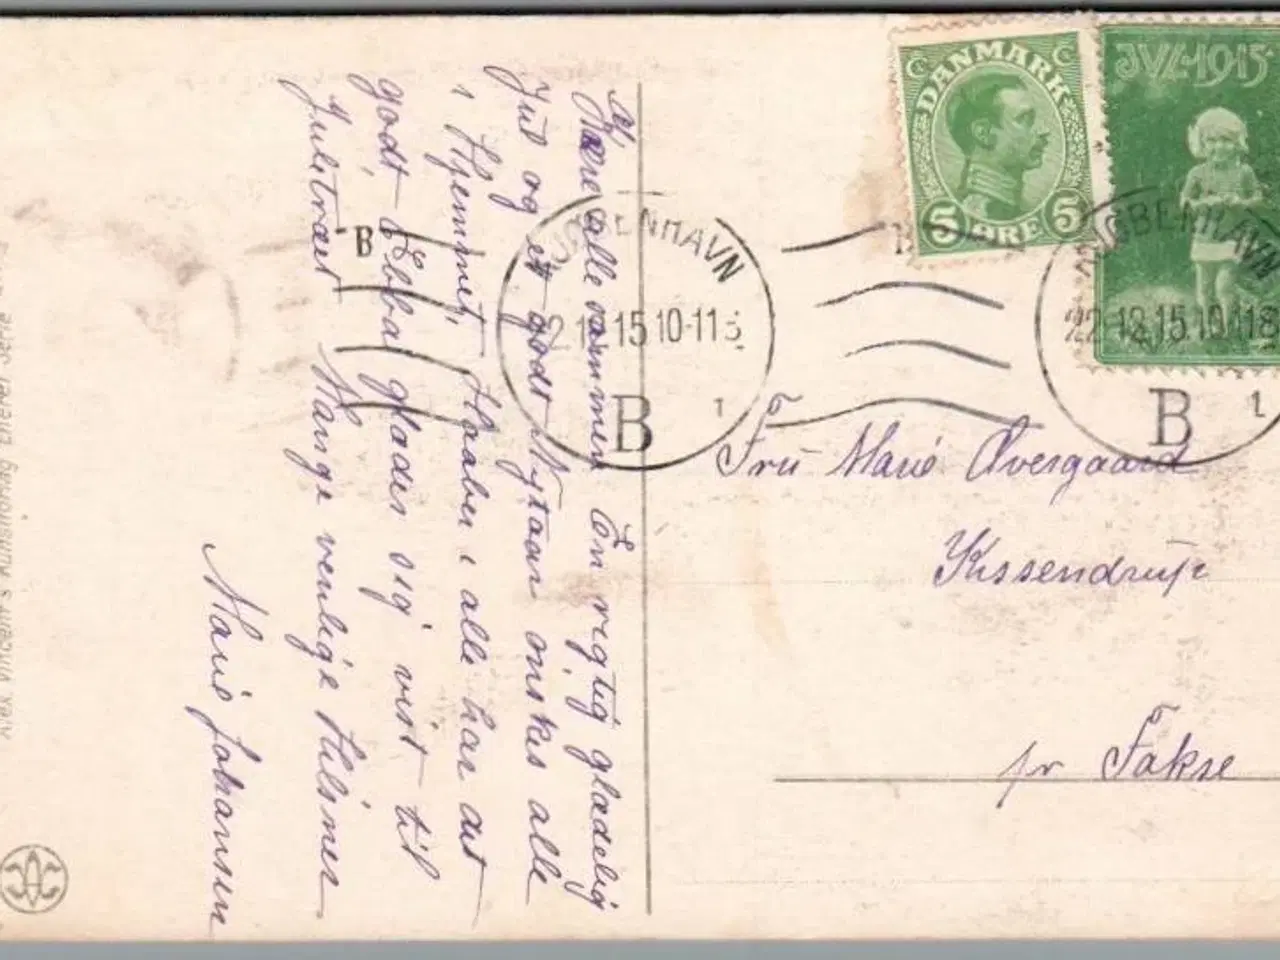 Kære alle sammen En rigtig glædelig
Jul og et godt Nytaar ønskes alle
i Hjemmet, Haaber i alle har det
godt Ebba glæder sig vist til
Juletræet Mange venlige Hilsner
Marie Johansen
DANMARK
5 ØRE 5
JUL·1915
KJØBENHAVN
22.12.15 10-11
B
1
KJØBENHAVN
22.12.15 10-11
B
1
B
Frü Marie Overgaard
Kissendrup
pr Fakse
Alex. Vincent's Kunstforlag Eneret Serie